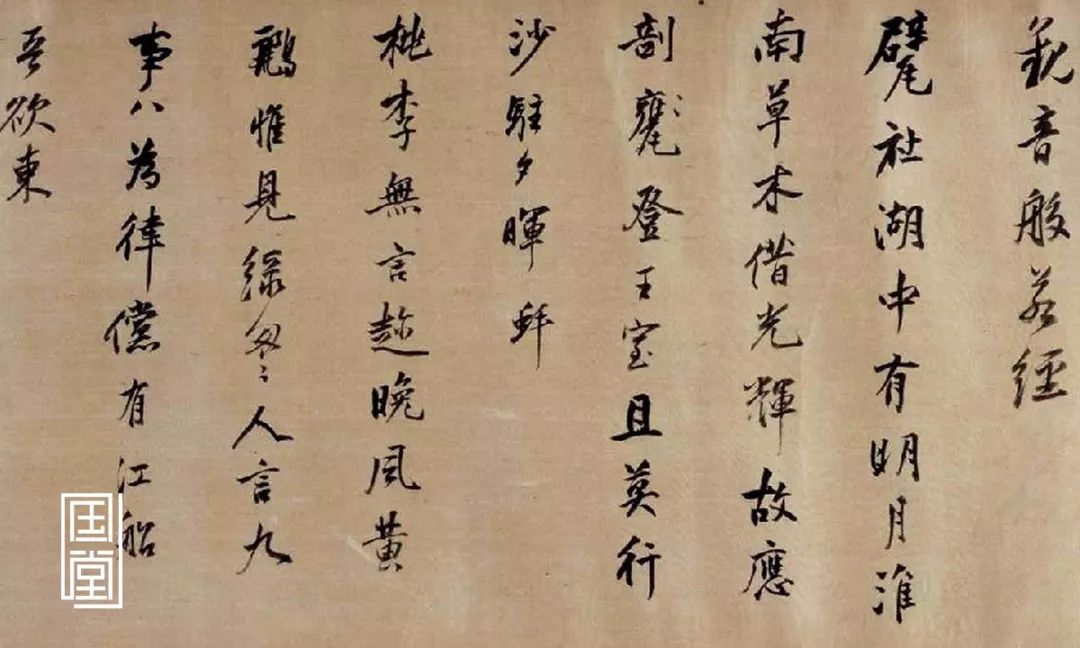 觀音般若經
甓社湖中有明月淮
南草木借光輝故應
剖登王室且莫行
沙駐夕暉蚌
桃李無言趁晚風黃
鸝惟見綠匆々人言九
事八為律儻有江船
吾欲東